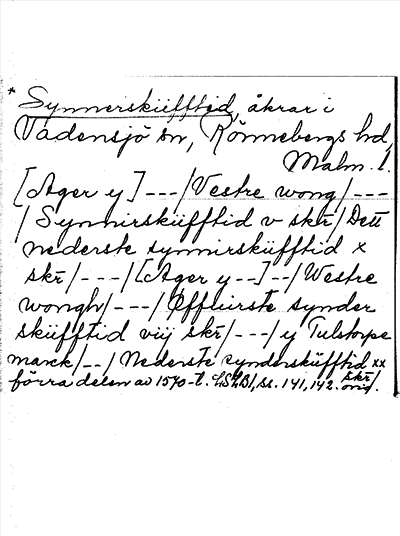 * Synnerskiifftid, åkrar i
Vadensjö sn, Rönnebergs hd,
Malm. l.
[Ager y] ---/Vestre wong/---
/Synnirskiifftid v skr/Dett
nederste synnirskiifftid x
skr/---/[Ager y--]--/Westre
wongh/---/Øffuirste synder
skiifftid viij skr/---/y Tulstorpe
marck/--/Nederste synderskiifftid xx
skr/
förra delen av 1570-t. LSLB1, ss. 141, 142. orig.